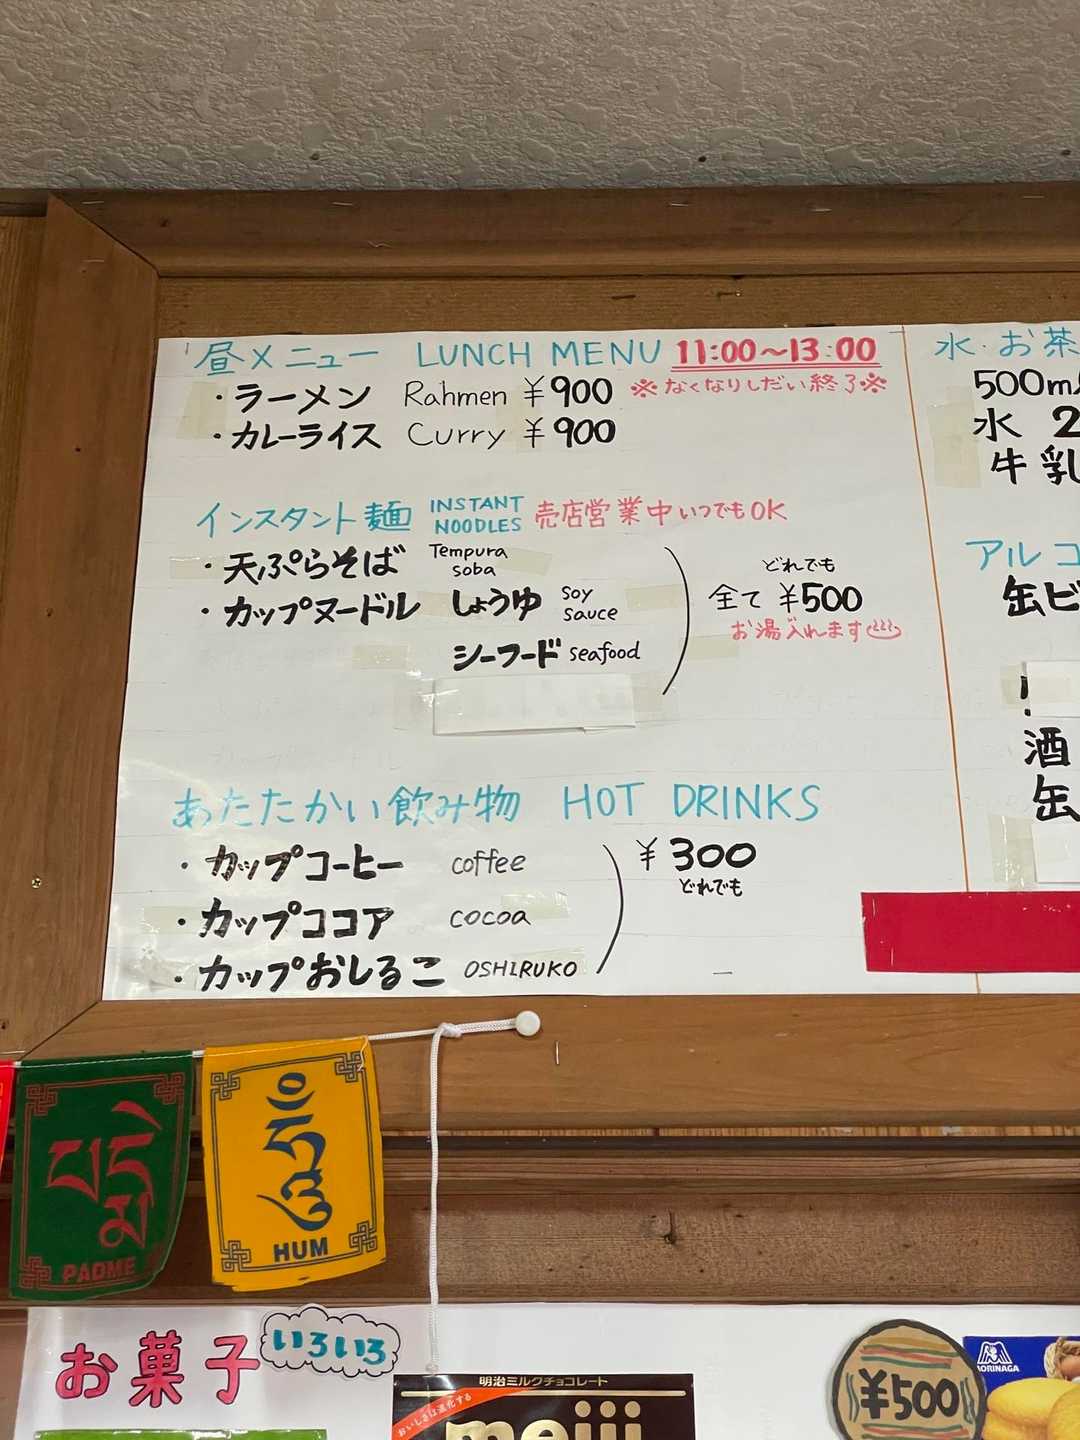 昼メニュー LUNCH MENU 11:00～13:00
・ラーメン Rahmen ¥900 ※なくなりしだい終了※
・カレーライス Curry ¥900
インスタント麺 INSTANT NOODLES 売店営業中いつでもOK
・天ぷらそば Tempura soba
・カップヌードル しょうゆ Soy sauce
シーフード seafood
どれでも
全て ¥500
お湯入れます♨
あたたかい飲み物 HOT DRINKS
・カップコーヒー coffee
・カップココア cocoa
・カップおしるこ OSHIRUKO
¥300
どれでも
水・お茶
500m
水 2
牛乳
アルコ
缶ビ
酒
缶
PADME
HUM
お菓子 いろいろ
明治ミルクチョコレート
おいしさは進化する
meiji
¥500
MORINAGA